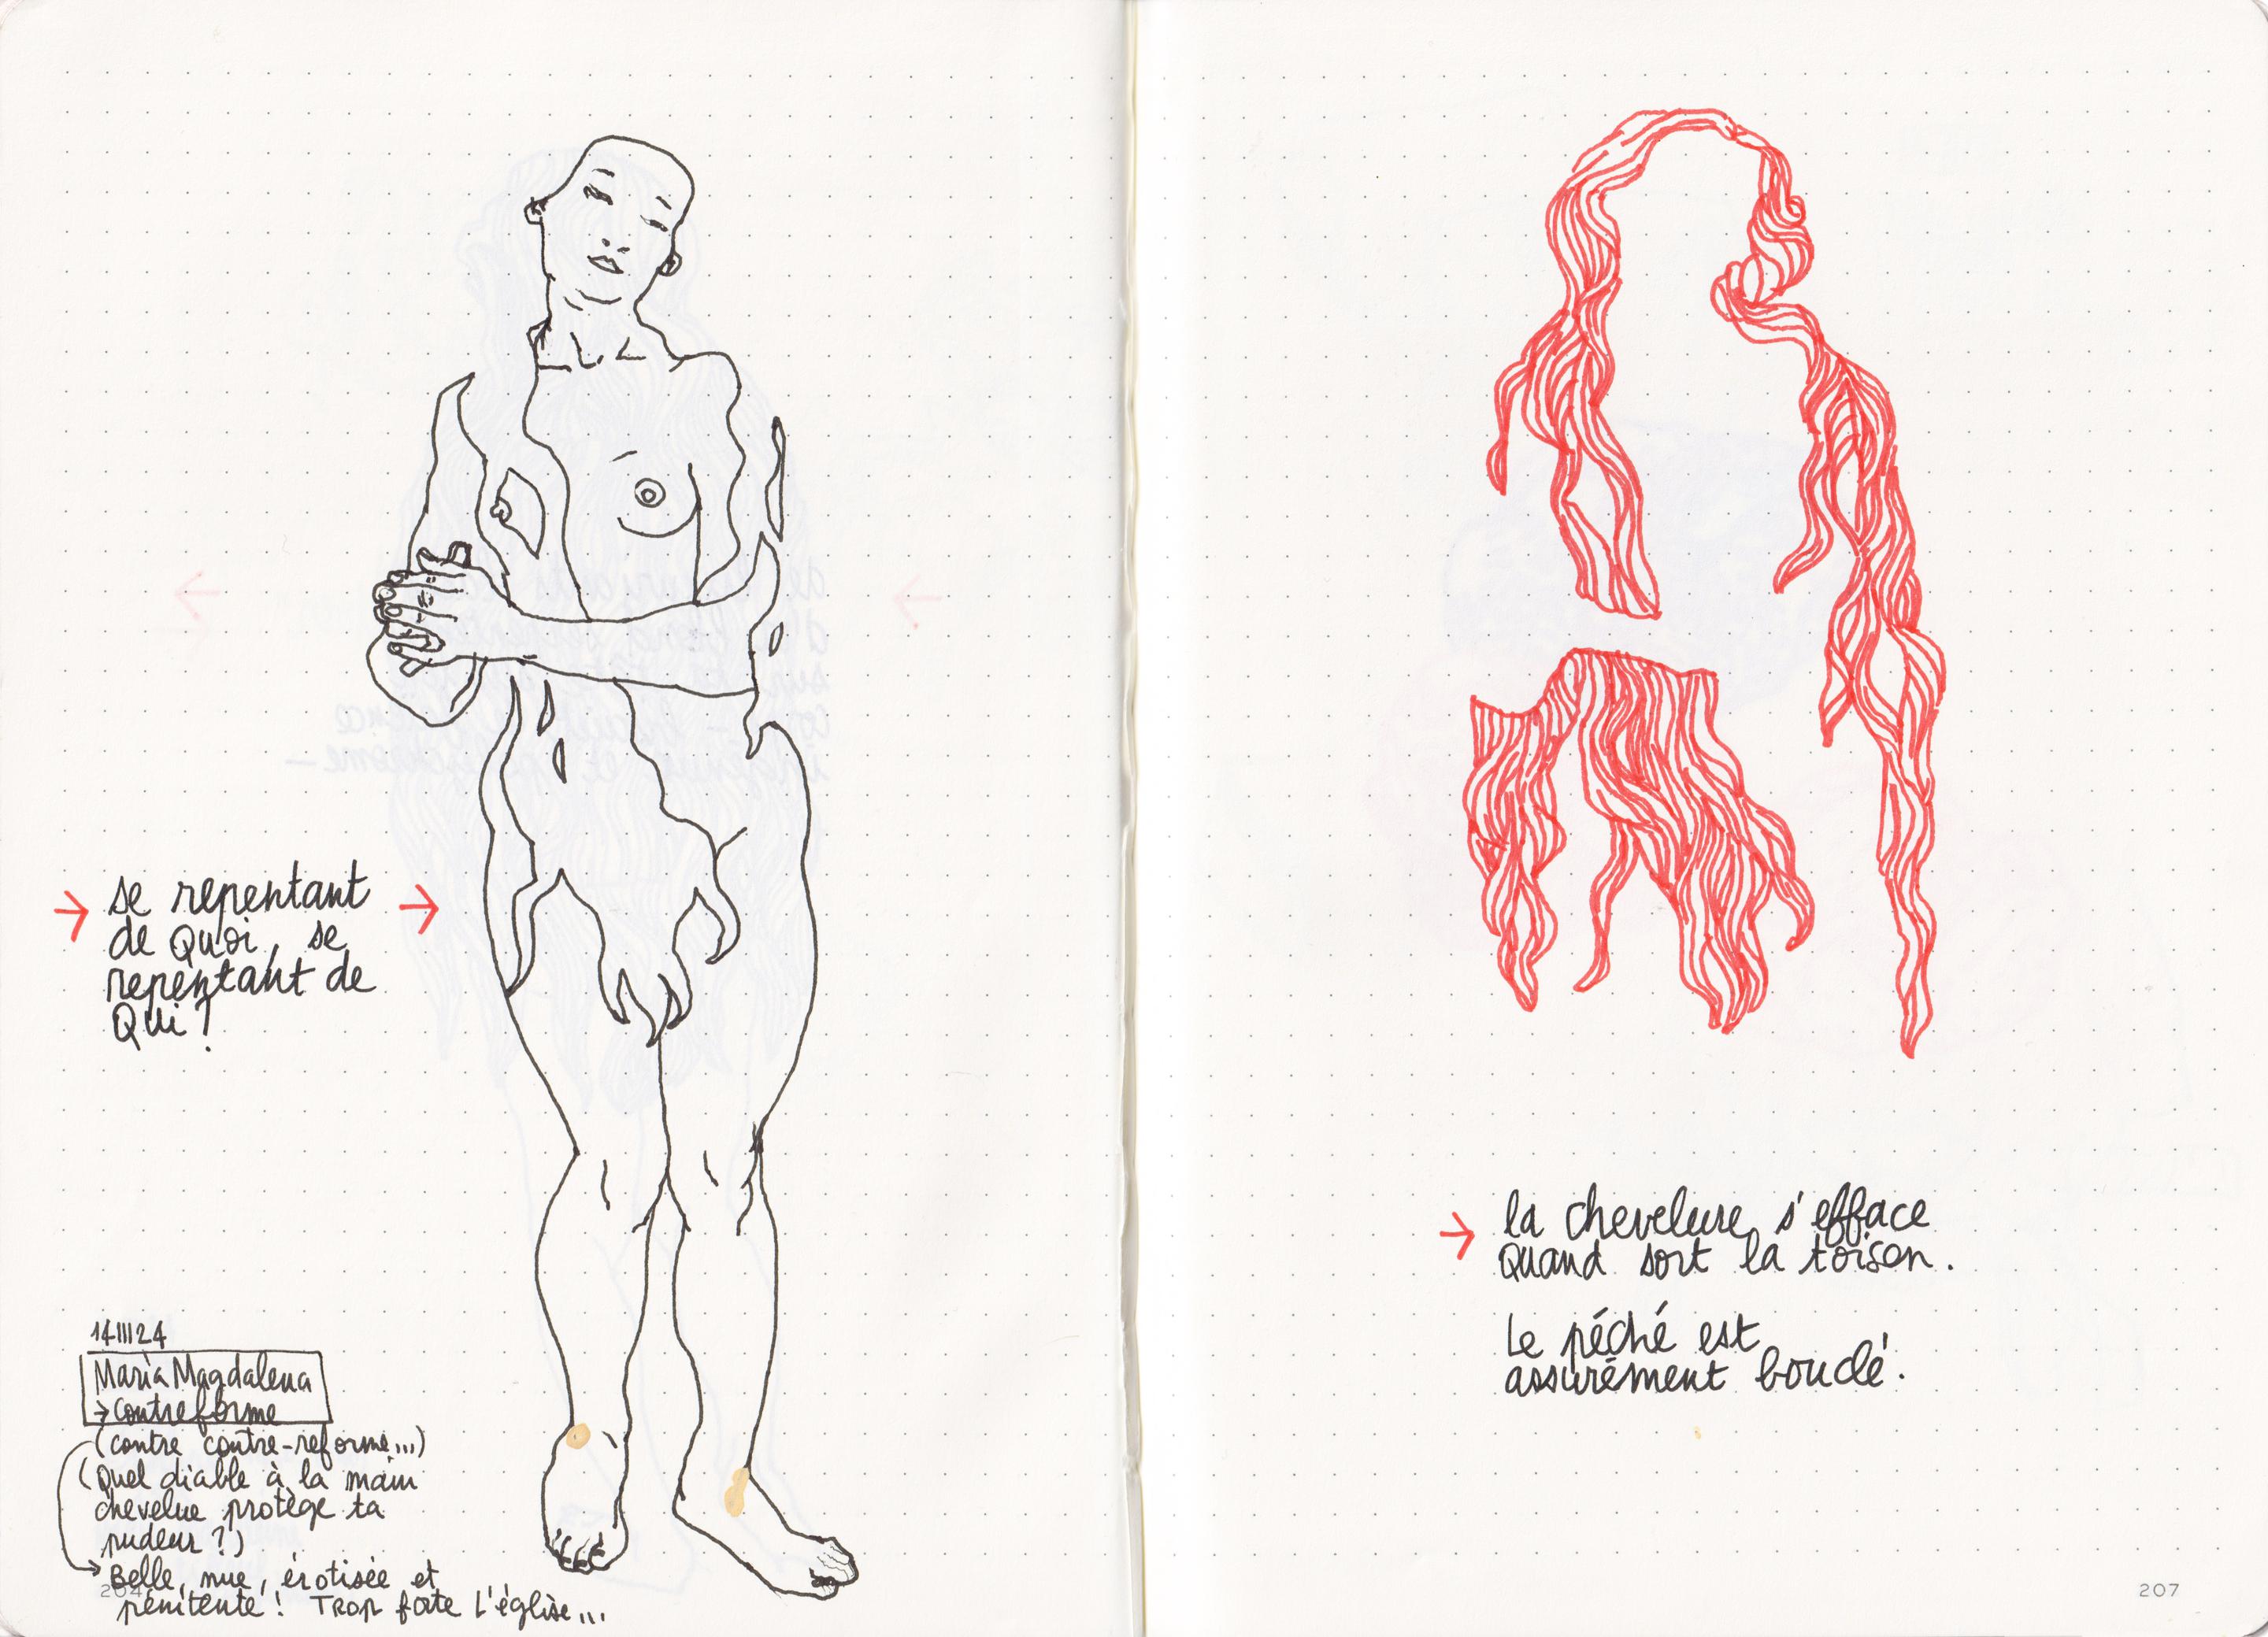 se repentant
de Quoi, se
repentant de
Qui?
14III24
Maria Magdalena
→ contreforme
(contre contre-reforme...)
(Quel diable à la main
chevelue protège ta
pudeur ?)
Belle, nue, érotisée et
pénitente! TROP forte L'église...
la chevelure s'efface
Quand sort la toison.
Le péché est
assurément bouclé.
207